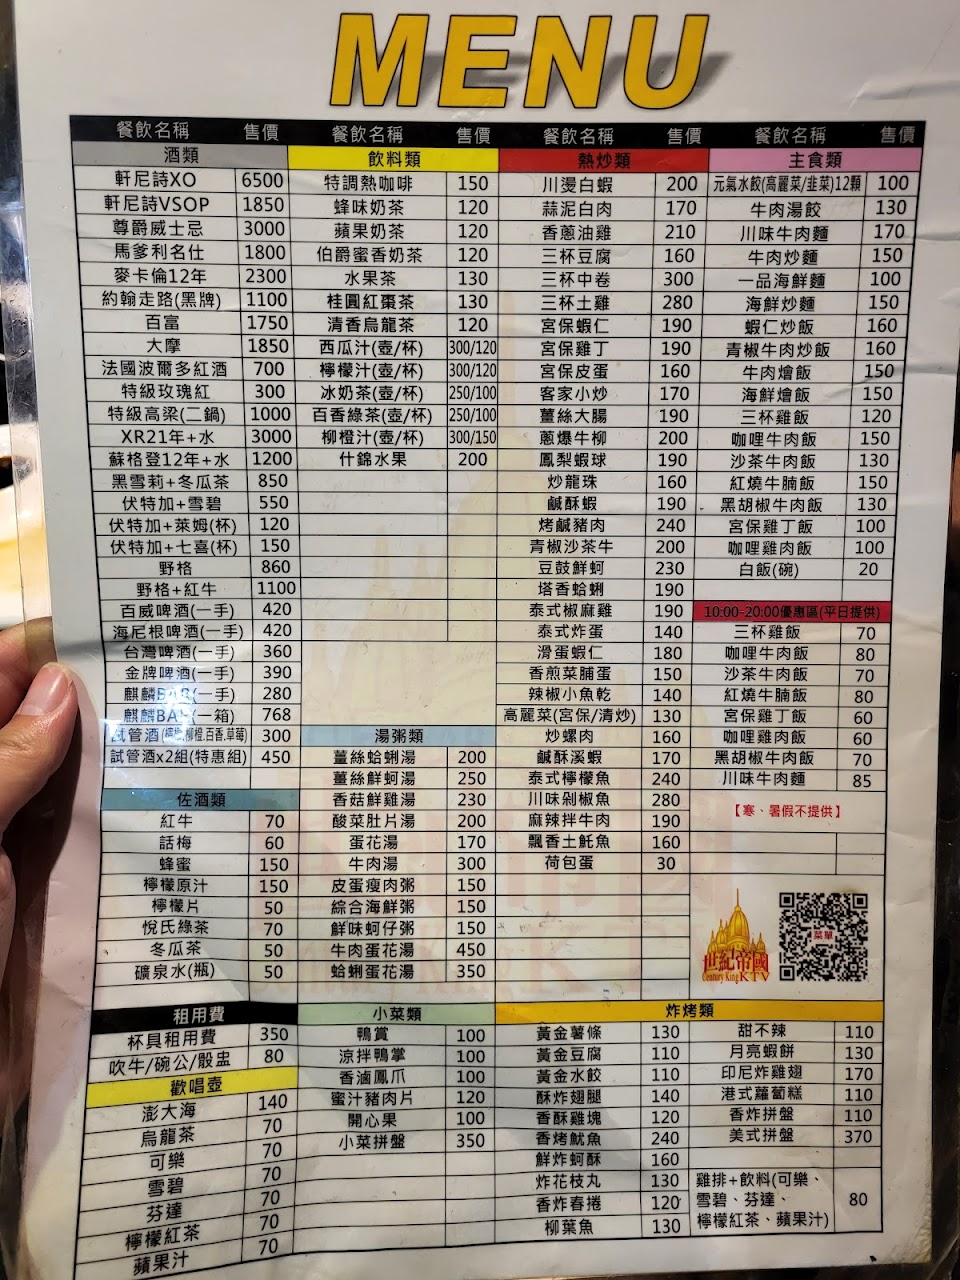 MENU
餐飲名稱 售價 餐飲名稱 售價 餐飲名稱 售價 餐飲名稱 售價
酒類
軒尼詩XO 6500
軒尼詩VSOP 1850
尊爵威士忌 3000
馬爹利名仕 1800
麥卡倫12年 2300
約翰走路(黑牌) 1100
百富 1750
大摩 1850
法國波爾多紅酒 700
特級玫瑰紅 300
特級高梁(二鍋) 1000
XR21年+水 3000
蘇格登12年+水 1200
黑雪莉+冬瓜茶 850
伏特加+雪碧 550
伏特加+萊姆(杯) 120
伏特加+七喜(杯) 150
野格 860
野格+紅牛 1100
百威啤酒(一手) 420
海尼根啤酒(一手) 420
台灣啤酒(一手) 360
金牌啤酒(一手) 390
麒麟BAR(一手) 280
麒麟BAR(一箱) 768
試管酒(檸檬,柳橙,百香,草莓) 300
試管酒x2組(特惠組) 450
佐酒類
紅牛 70
話梅 60
蜂蜜 150
檸檬原汁 150
檸檬片 50
悅氏綠茶 70
冬瓜茶 50
礦泉水(瓶) 50
租用費
杯具租用費 350
吹牛/碗公/骰盅 80
歡唱壺
澎大海 140
烏龍茶 70
可樂 70
雪碧 70
芬達 70
檸檬紅茶 70
蘋果汁 70
飲料類
特調熱咖啡 150
蜂味奶茶 120
蘋果奶茶 120
伯爵蜜香奶茶 120
水果茶 130
桂圓紅棗茶 130
清香烏龍茶 120
西瓜汁(壺/杯) 300/120
檸檬汁(壺/杯) 300/120
冰奶茶(壺/杯) 250/100
百香綠茶(壺/杯) 250/100
柳橙汁(壺/杯) 300/150
什錦水果 200
湯粥類
薑絲蛤蜊湯 200
薑絲鮮蚵湯 250
香菇鮮雞湯 230
酸菜肚片湯 200
蛋花湯 170
牛肉湯 300
皮蛋瘦肉粥 150
綜合海鮮粥 150
鮮味蚵仔粥 150
牛肉蛋花湯 450
蛤蜊蛋花湯 350
小菜類
鴨賞 100
涼拌鴨掌 100
香滷鳳爪 100
蜜汁豬肉片 120
開心果 100
小菜拼盤 350
熱炒類
川燙白蝦 200
蒜泥白肉 170
香蔥油雞 210
三杯豆腐 160
三杯中卷 300
三杯土雞 280
宮保蝦仁 190
宮保雞丁 190
宮保皮蛋 160
客家小炒 170
薑絲大腸 190
蔥爆牛柳 200
鳳梨蝦球 190
炒龍珠 160
鹹酥蝦 190
烤鹹豬肉 240
青椒沙茶牛 200
豆鼓鮮蚵 230
塔香蛤蜊 190
泰式椒麻雞 190
泰式炸蛋 140
滑蛋蝦仁 180
香煎菜脯蛋 150
辣椒小魚乾 140
高麗菜(宮保/清炒) 130
炒螺肉 160
鹹酥溪蝦 170
泰式檸檬魚 240
川味剁椒魚 280
麻辣拌牛肉 190
飄香土魠魚 160
荷包蛋 30
主食類
元氣水餃(高麗菜/韭菜)12顆 100
牛肉湯餃 130
川味牛肉麵 170
牛肉炒麵 150
一品海鮮麵 100
海鮮炒麵 150
蝦仁炒飯 160
青椒牛肉炒飯 160
牛肉燴飯 150
海鮮燴飯 150
三杯雞飯 120
咖哩牛肉飯 150
沙茶牛肉飯 130
紅燒牛腩飯 150
黑胡椒牛肉飯 130
宮保雞丁飯 100
咖哩雞肉飯 100
白飯(碗) 20
10:00-20:00優惠區(平日提供)
三杯雞飯 70
咖哩牛肉飯 80
沙茶牛肉飯 70
紅燒牛腩飯 80
宮保雞丁飯 60
咖哩雞肉飯 60
黑胡椒牛肉飯 70
川味牛肉麵 85
【寒、暑假不提供】
菜單
世紀帝國
Century King KTV
炸烤類
黃金薯條 130
黃金豆腐 110
黃金水餃 110
酥炸翅腿 140
香酥雞塊 120
香烤魷魚 240
鮮炸蚵酥 160
炸花枝丸 130
香炸春捲 120
柳葉魚 130
甜不辣 110
月亮蝦餅 130
印尼炸雞翅 170
港式蘿蔔糕 110
香炸拼盤 110
美式拼盤 370
雞排+飲料(可樂、
雪碧、芬達、 80
檸檬紅茶、蘋果汁)